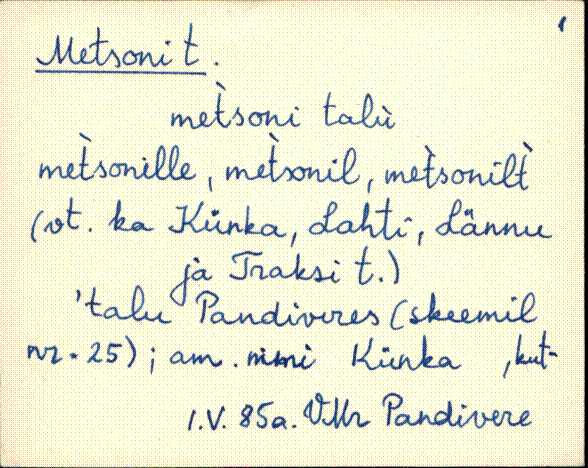 Metsoni t.
met̀soni talù
met̀sonille, met̀sonil, met̀sonilt̀
(vt. ka Künka, Lahti, Lännu
ja Traksi t.)
'talu Pandiveres (skeemil
nr. 25); am. nimi Künka, kut-
1.V. 85a. VMr Pandivere